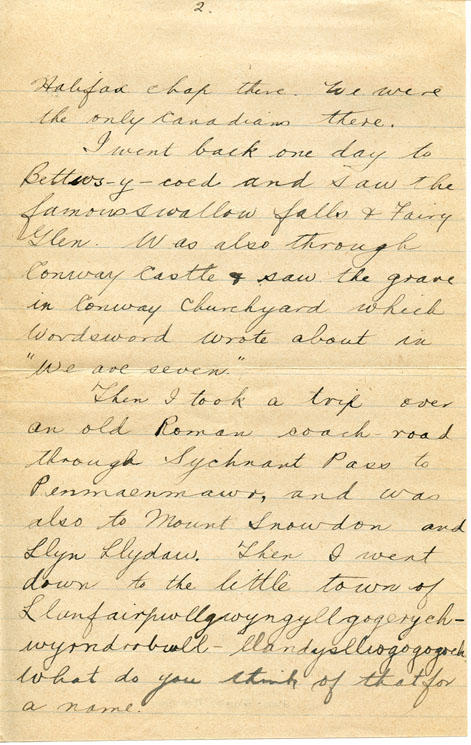 2.
Halifax chap there. We were
the only Canadians there.
I went back one day to
Bettws-y-coed and saw the
famous swallow falls & Fairy
Glen. Was also through
Conway Castle & saw the grave
in Conway Churchyard which
Wordsword wrote about in
"We are seven."
Then I took a trip over
an old Roman coach-road
through Sychnant Pass to
Penmaenmawr, and was
also to Mount Snowdon and
Llyn Llydaw. Then I went
down to the little town of
Llanfairpwllgwyngyllgogerych-
wyrndrobwll-llandysiliogogogoch
What do you think of that for
a name.